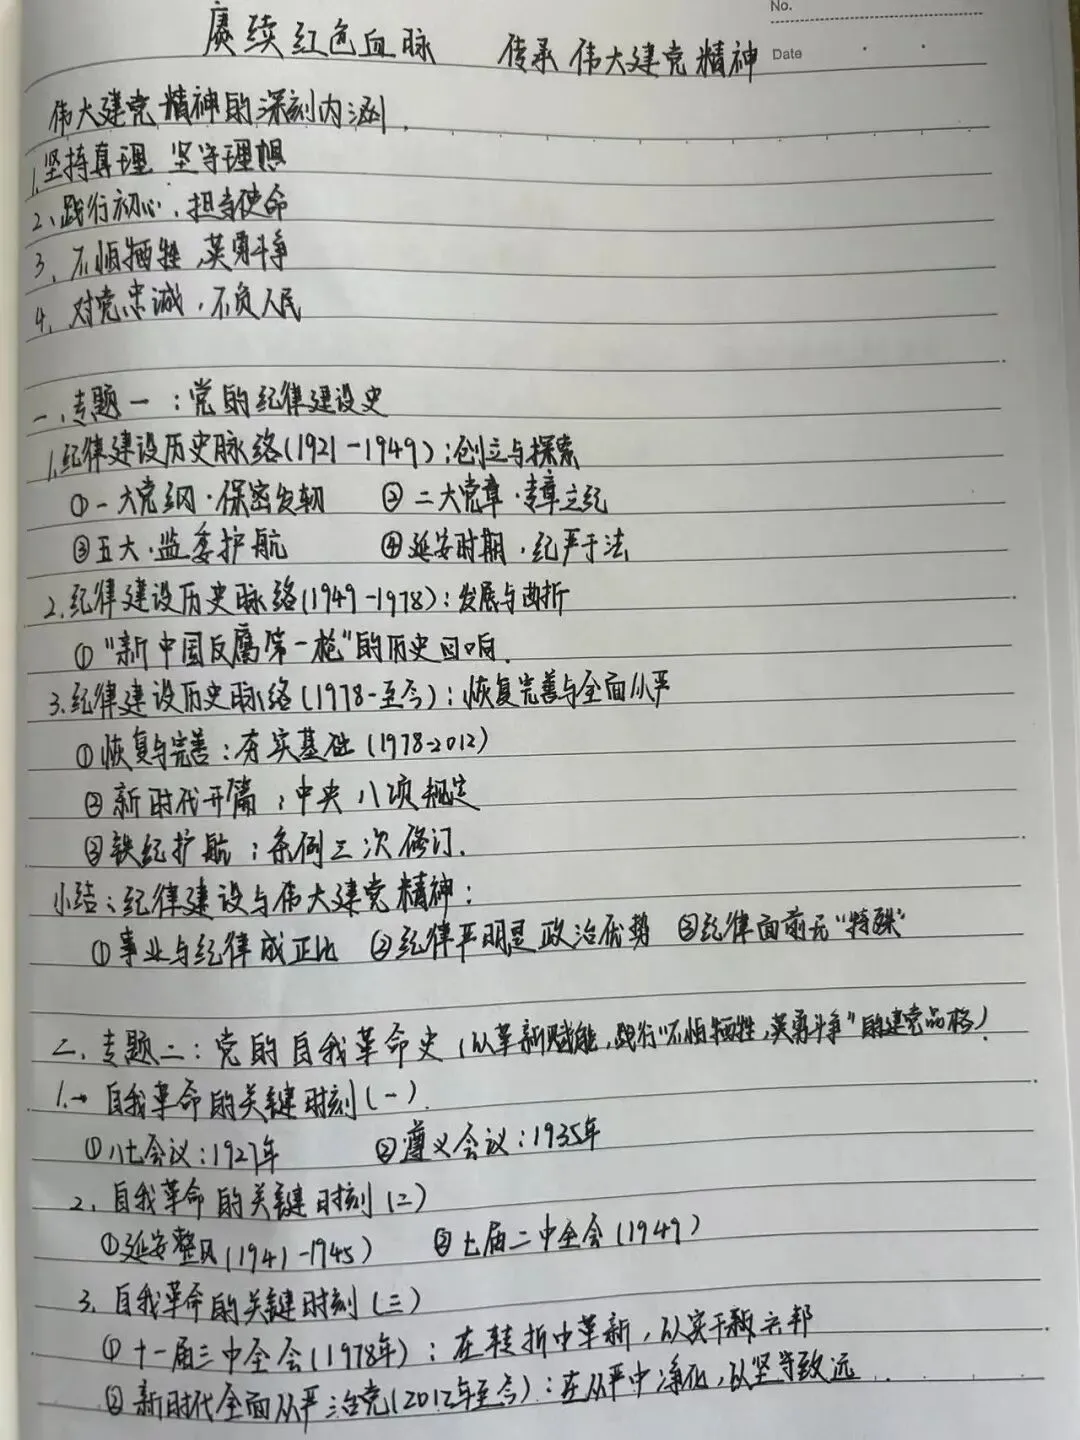 No.
赓续红色血脉 传承伟大建党精神 Date
伟大建党精神的深刻内涵.
1.坚持真理 坚守理想
2、践行初心、担当使命
3、不怕牺牲、英勇斗争
4、对党忠诚、不负人民
一、专题一：党的纪律建设史
1.纪律建设历史脉络(1921-1949):创立与探索
①一大党纲·保密发轫 ②二大党章·专章立纪
③五大·监委护航 ④延安时期·纪严于法
2.纪律建设历史脉络(1949-1978):发展与曲折
①"新中国反腐第一枪"的历史回响.
3.纪律建设历史脉络(1978-至今):恢复完善与全面从严
①恢复与完善:夯实基础(1978-2012)
②新时代开篇:中央八项规定
③铁纪护航:条例三次修订.
小结:纪律建设与伟大建党精神:
①事业与纪律成正比 ②纪律严明是政治优势 ③纪律面前无"特殊"
二、专题二:党的自我革命史(以革新赋能,践行"不怕牺牲,英勇斗争"的建党品格)
1.→自我革命的关键时刻(一).
①八七会议:1927年 ②遵义会议:1935年
2、自我革命的关键时刻(二)
①延安整风(1941-1945) ②七届二中全会(1949)
3、自我革命的关键时刻(三)
①十一届三中全会(1978年):在转折中革新,以实干兴邦
②新时代全面从严治党(2012年至今):在从严中净化,以坚守致远